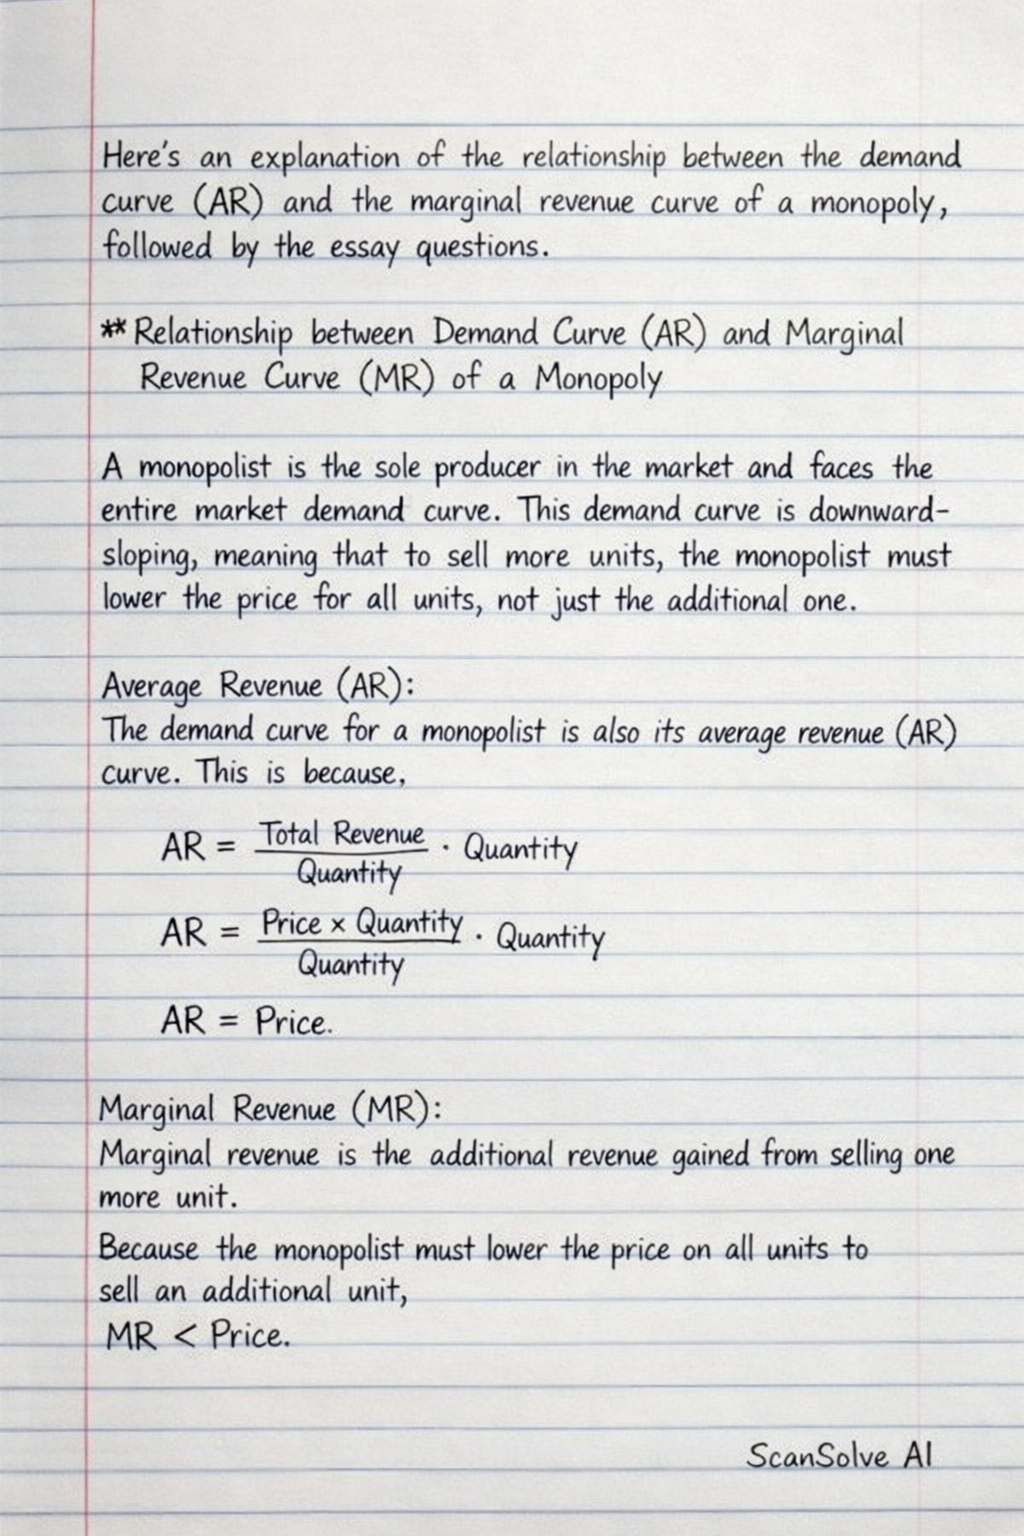 Here's an explanation of the relationship between the demand
curve (AR) and the marginal revenue curve of a monopoly,
followed by the essay questions.
** Relationship between Demand Curve (AR) and Marginal
Revenue Curve (MR) of a Monopoly
A monopolist is the sole producer in the market and faces the
entire market demand curve. This demand curve is downward-
sloping, meaning that to sell more units, the monopolist must
lower the price for all units, not just the additional one.
Average Revenue (AR):
The demand curve for a monopolist is also its average revenue (AR)
curve. This is because,
AR = Total Revenue / Quantity · Quantity
AR = Price × Quantity / Quantity · Quantity
AR = Price.
Marginal Revenue (MR):
Marginal revenue is the additional revenue gained from selling one
more unit.
Because the monopolist must lower the price on all units to
sell an additional unit,
MR < Price.
ScanSolve AI